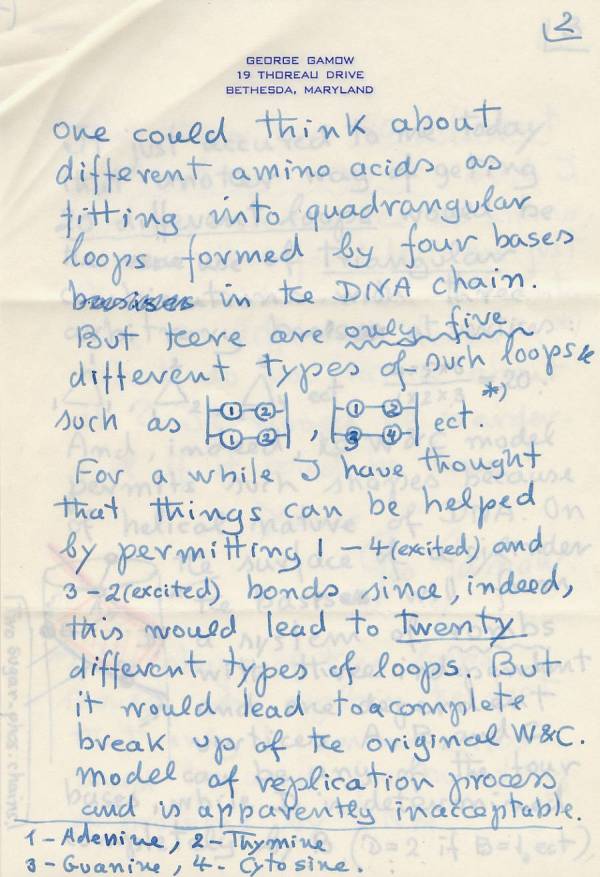 2
GEORGE GAMOW
19 THOREAU DRIVE
BETHESDA, MARYLAND
one could think about
different amino acids as
fitting into quadrangular
loops formed by four bases
in the DNA chain.
But there are only five
different types of such loops
such as 1 2 1 2 , 1 2 3 4 ect. *)
For a while I have thought
that things can be helped
by permitting 1 – 4 (excited) and
3 – 2 (excited) bonds since, indeed,
this would lead to Twenty
different types of loops. But
it would lead to a complete
break up of the original W&C.
model of replication process
and is apparently inacceptable.
1 - Adenine, 2 - Thymine
3 - Guanine, 4 - Cytosine.